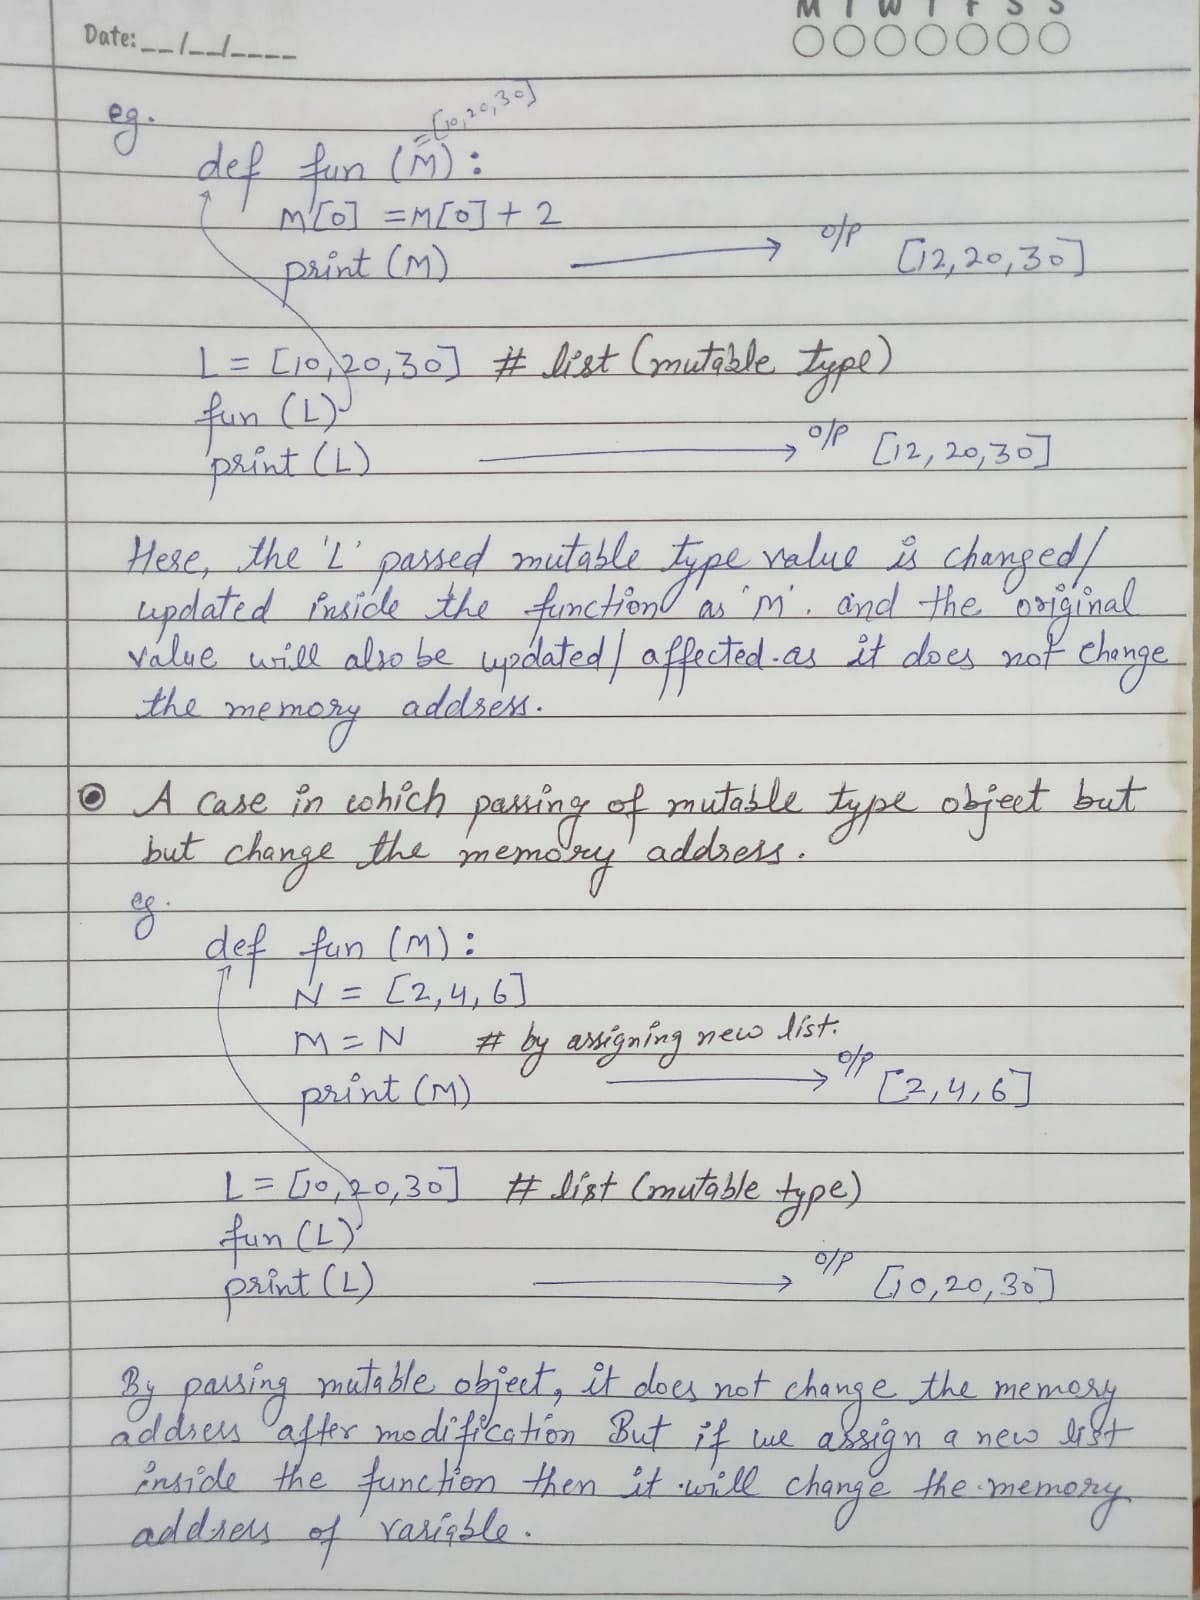 M T W T F S S
Date:__/__/____
eg.
=[10,20,30]
def fun (M) :
M[0] = M[0] + 2
print (M) → o/p [12, 20, 30]
L = [10, 20, 30] # list (mutable type)
fun (L)
print (L) → o/p [12, 20, 30]
Here, the 'L' passed mutable type value is changed/
updated inside the function as 'M'. and the original
value will also be updated/ affected. as it does not change
the memory address.
A case in which passing of mutable type object but
but change the memory address.
eg.
def fun (M) :
N = [2, 4, 6]
M = N # by assigning new list.
print (M) → o/p [2, 4, 6]
L = [10, 20, 30] # list (mutable type)
fun (L)
print (L) → o/p [10, 20, 30]
By passing mutable object, it does not change the memory
address after modification But if we assign a new list
inside the function then it will change the memory
address of variable.